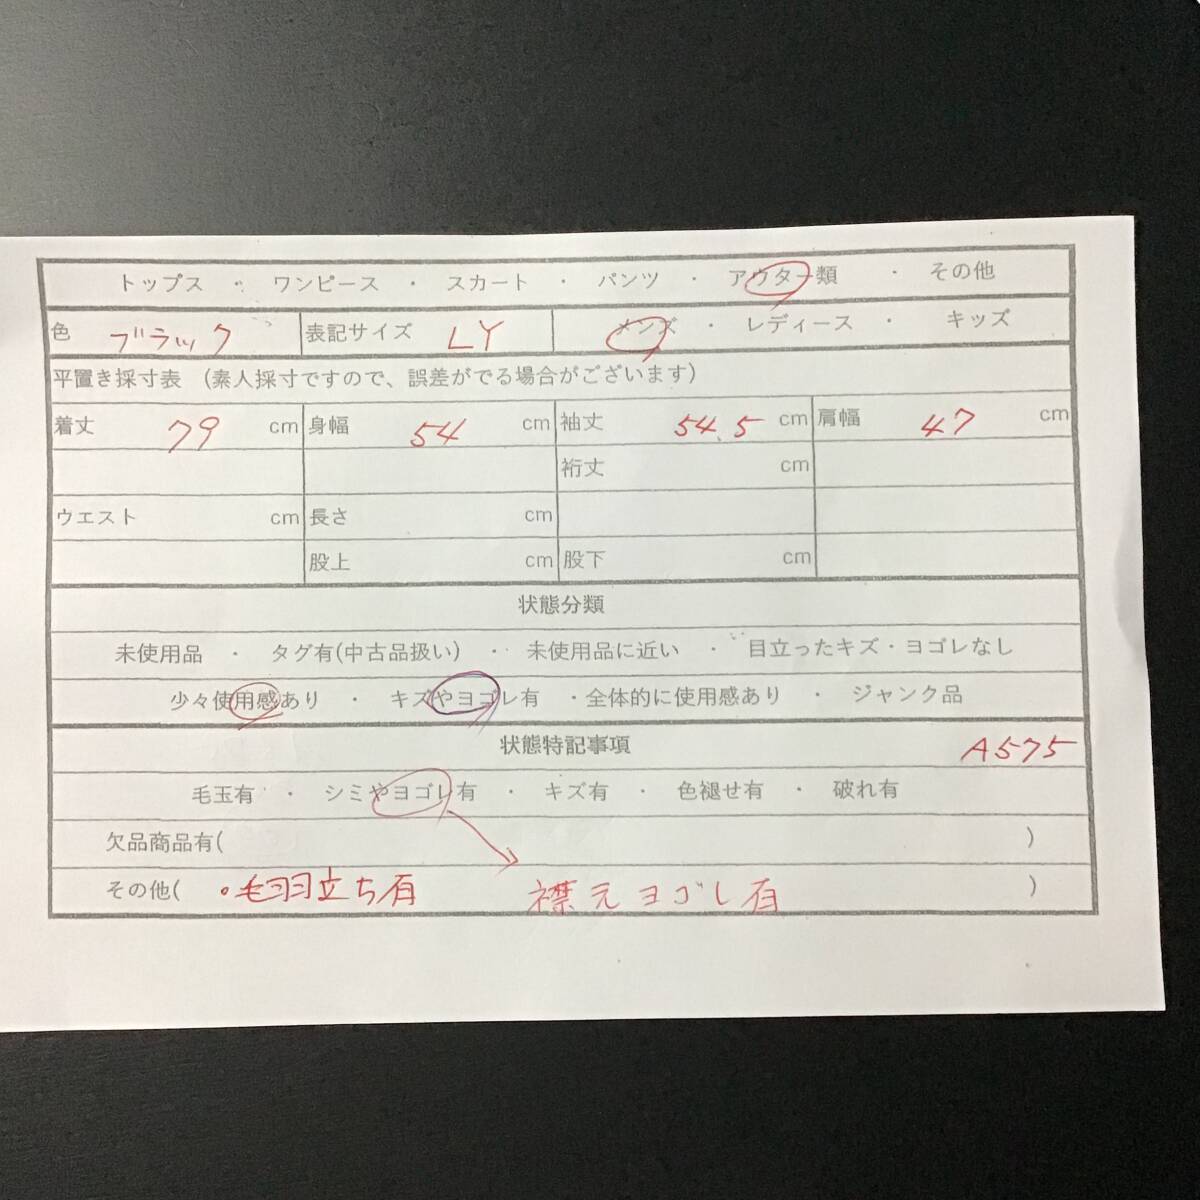 トップス ・ ワンピース ・ スカート ・ パンツ ・ アウター類 ・ その他
色 ブラック 表記サイズ LY メンズ ・ レディース ・ キッズ
平置き採寸表 (素人採寸ですので、誤差がでる場合がございます)
着丈 79 cm 身幅 54 cm 袖丈 54.5 cm 肩幅 47 cm
裄丈 cm
ウエスト cm 長さ cm
股上 cm 股下 cm
状態分類
未使用品 ・ タグ有(中古品扱い) ・ 未使用品に近い ・ 目立ったキズ・ヨゴレなし
少々使用感あり ・ キズやヨゴレ有 ・全体的に使用感あり ・ ジャンク品
状態特記事項 A575
毛玉有 ・ シミやヨゴレ有 ・ キズ有 ・ 色褪せ有 ・ 破れ有
欠品商品有( )
その他( ・毛羽立ち有 襟元ヨゴレ有 )